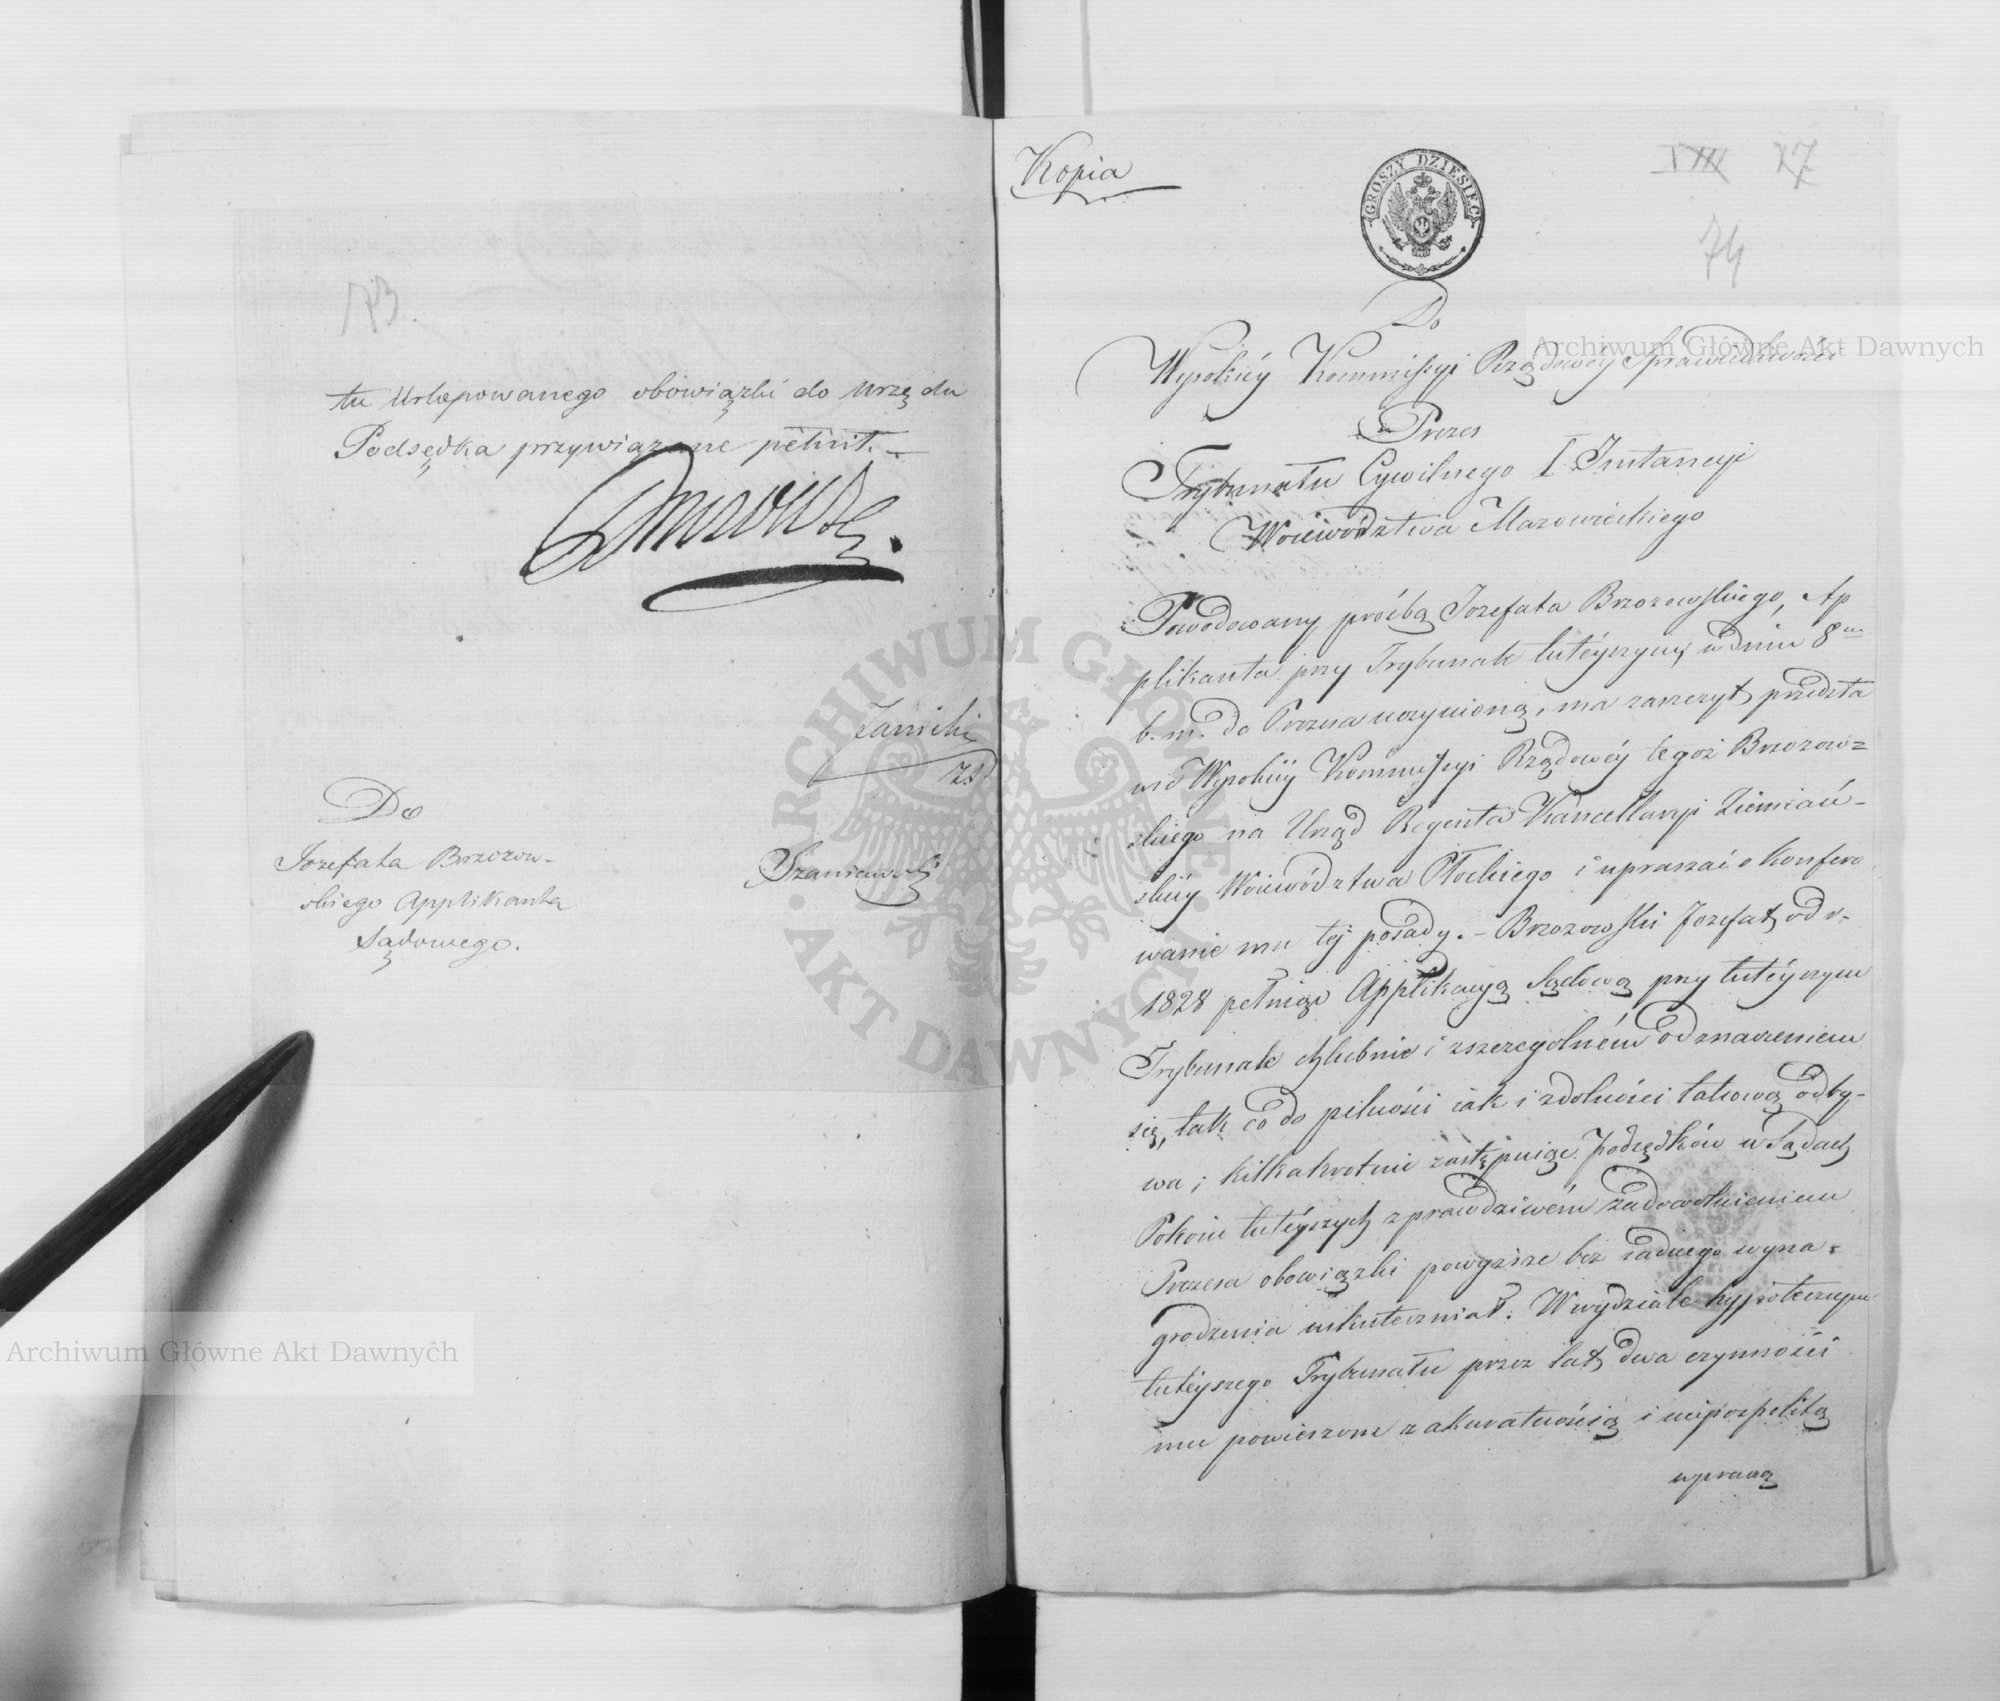 173.
tu Urlopowanego obowiązki do Urzędu
Podsędka przywiązane pełnił. –
Janicki
zs
Szaniawski
Do
Jozefata Brzozow-
skiego Applikanta
Sądowego.
Kopia
GROSZY DZIESIĘĆ
XVIII 27
74
Do
Wysokiéy Kommissyi Rządowéy Sprawiedliwości
Prezes
Trybunału Cywilnego I Instancyi
Woiewództwa Mazowieckiego
Powodowany proźbą Jozefata Brzozowskiego, Ap
plikanta przy Trybunale tutéyszym, w dniu 8
b. m. do Prezesa uczynioną, ma zaszczyt przedsta
wić Wysokiéy Kommissyi Rządowéy tegoż Brzozow=
skiego na Urząd Regenta Kancellaryi Ziemiań-
skiéy Woiewództwa Płockiego i upraszać o konfero
wanie mu téj posady. – Brzozowski Jozefat od r.
1828 pełniąc Applikacyą Sądową przy tutéyszym
Trybunale chlubnie i z szczegolném odznaczeniem
się, tak co do pilności iak i zdolności takową odby-
wa; kilkakrotnie zastępuiąc Podsędków w Sądach
Pokoiu tutéyszych z prawdziwém zadowolnieniem
Prezesa obowiązki powyższe bez żadnego wyna-
grodzenia uskuteczniał. W wydziale hypotecznym
tutéyszego Trybunału przez lat dwa czynności
mu powierzone z akuratnością i niepospolitą
wprawą
Archiwum Główne Akt Dawnych
Archiwum Główne Akt Dawnych
ARCHIWUM GŁÓWNE · AKT DAWNYCH ·